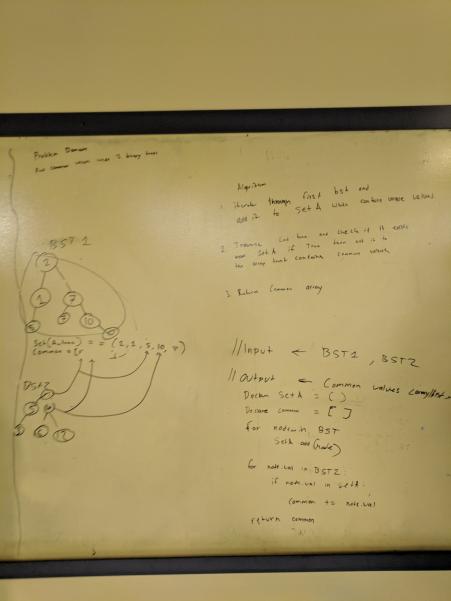 Problem Domain
Find common values under 2 binary trees
BST 1
2
1
7
5
10
Common = [
BST2
Algorithm
1. iterate through first bst and
add it to set A which contains unique values
2. Traverse 2nd tree and check if it exists
Set A if True then add it to
the array that contains common values
3. Return Common array
//Input ← BST1, BST2
//Output ← Common values array/list
Declare SetA = ()
Declare common = []
for node in BST
SetA.add(node)
for node.val in BST2:
if node.val in setA:
common += node.val
return common